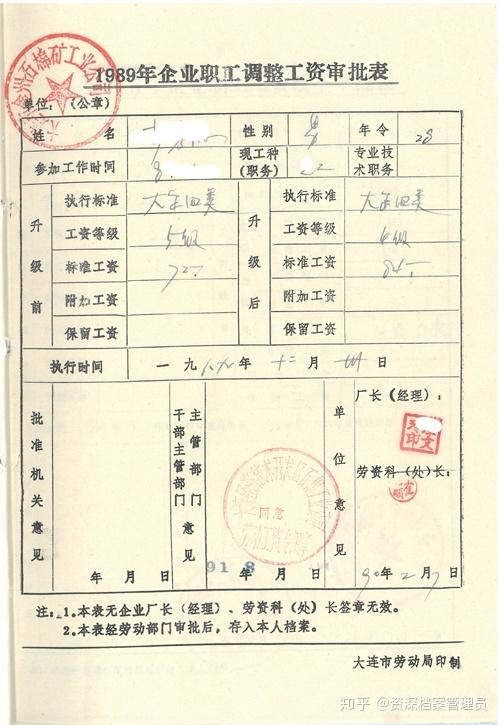 1989年企业职工调整工资审批表
单位：（公章）
姓 名 性别 男 年令 28
参加工作时间 8 现工种（职务） 专业技术职务
升级前 执行标准 大集四类 升级后 执行标准 大集四类
工资等级 5级 工资等级 6级
标准工资 72 标准工资 84
附加工资 附加工资
保留工资 保留工资
执行时间 一九八九年 十二 月 卅 日
批准机关意见 年 月 日
主管部门 干部主管部门 意见 同意 年 月 日
91 8
单位意见 厂长（经理）：
劳资科（处）长：
90年2月7日
注：1.本表无企业厂长（经理）、劳资科（处）长签章无效。
2.本表经劳动部门审批后，存入本人档案。
大连市劳动局印制
知乎 @资深档案管理员